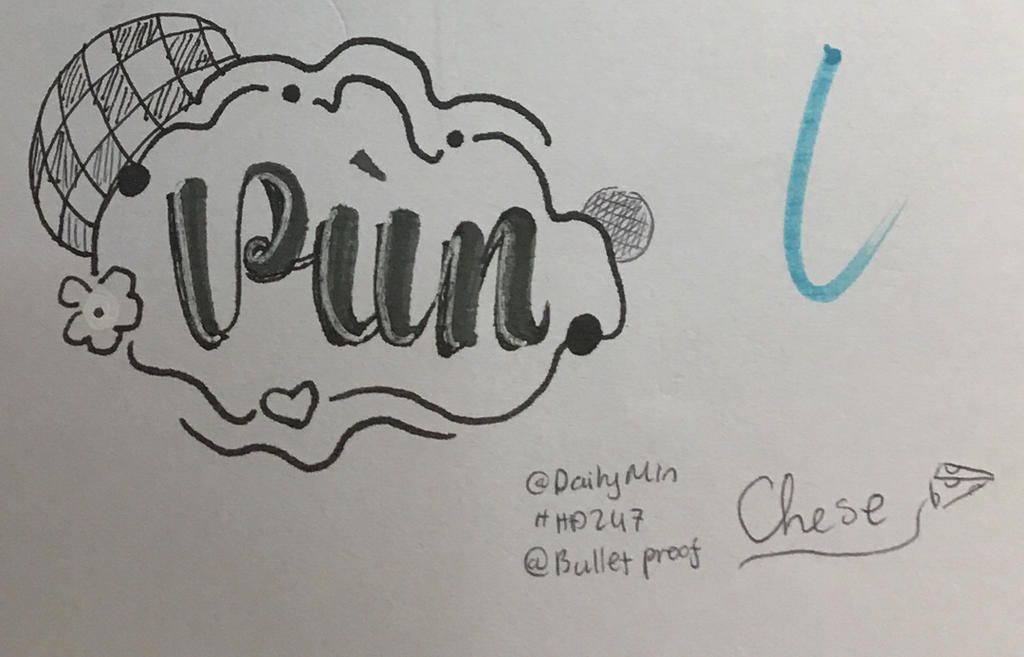 Pùn
@DailyMin
#HD247
@Bullet proof
Chese